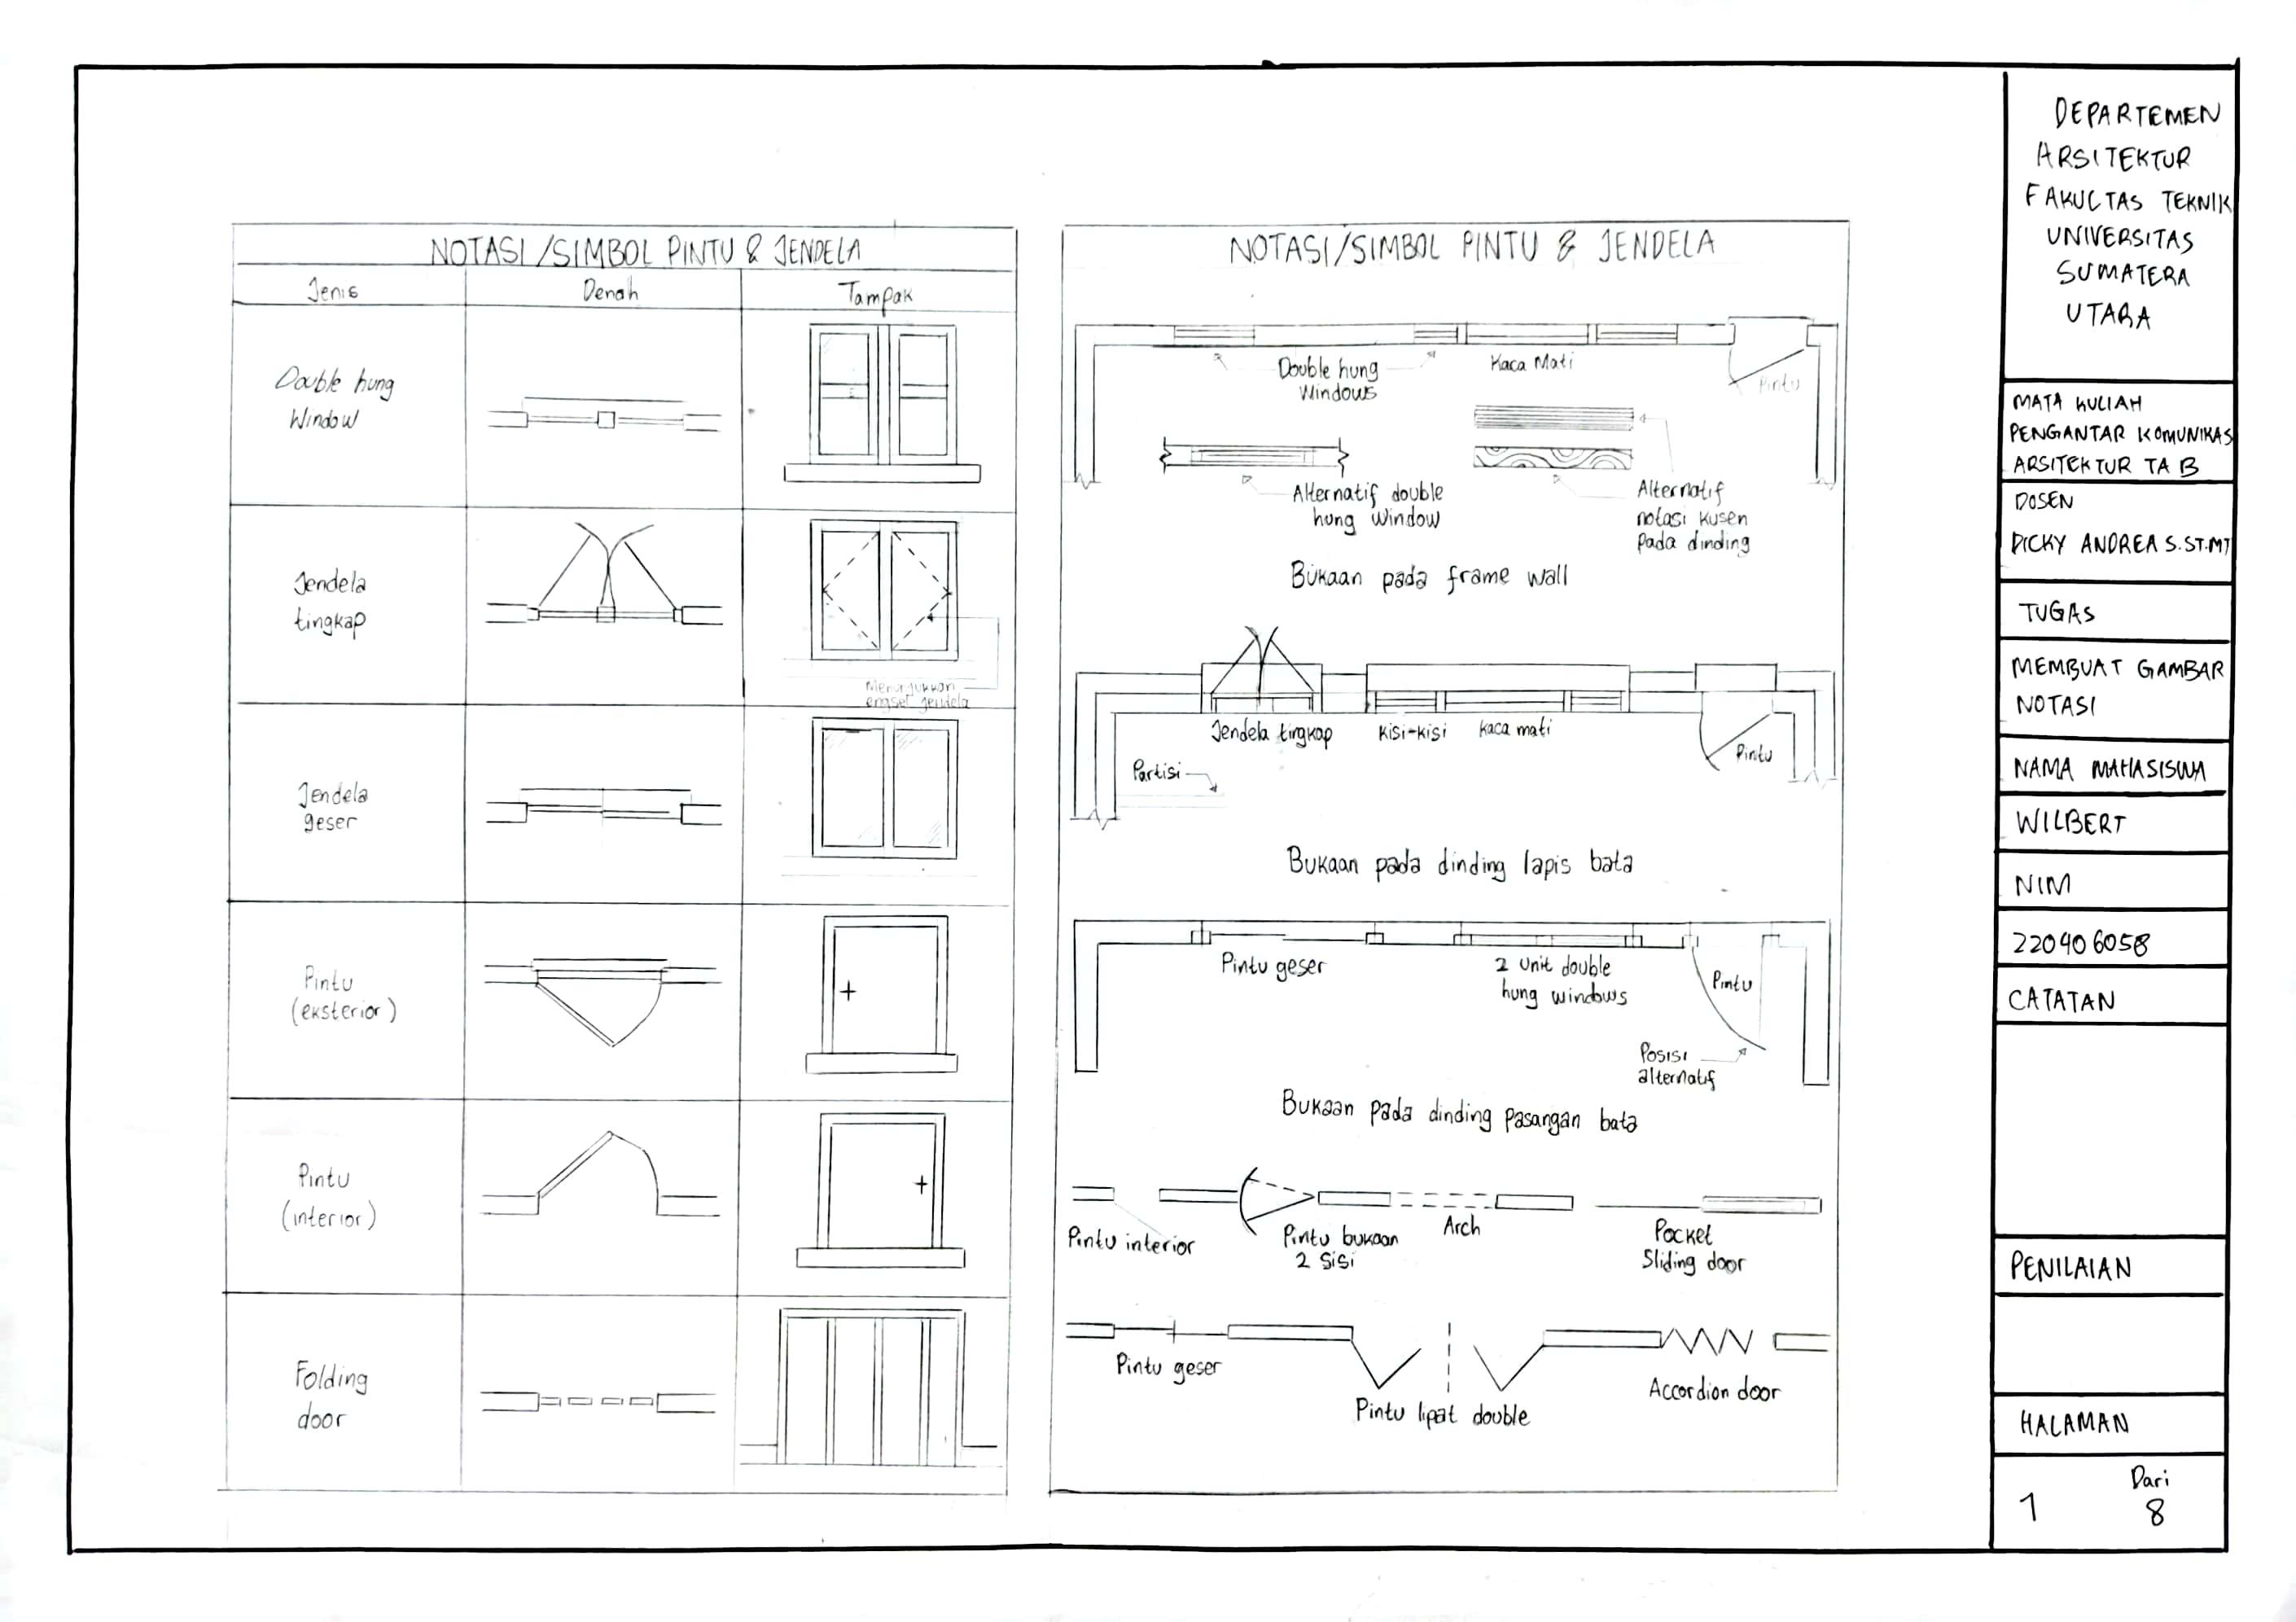 NOTASI/SIMBOL PINTU & JENDELA
Jenis
Denah
Tampak
Double hung
Window
Jendela
tingkap
Menunjukkan
engsel jendela
Jendela
geser
Pintu
(eksterior)
Pintu
(interior)
Folding
door
NOTASI/SIMBOL PINTU & JENDELA
Double hung
Windows
Kaca Mati
Pintu
Alternatif double
hung window
Alternatif
notasi kusen
pada dinding
Bukaan pada frame wall
Jendela tingkap
Kisi-kisi
kaca mati
Pintu
Partisi
Bukaan pada dinding lapis bata
Pintu geser
2 Unit double
hung windows
Pintu
Posisi
alternatif
Bukaan pada dinding pasangan bata
Pintu interior
Pintu bukaan
2 sisi
Arch
Pocket
Sliding door
Pintu geser
Pintu lipat double
Accordion door
DEPARTEMEN
ARSITEKTUR
FAKULTAS TEKNIK
UNIVERSITAS
SUMATERA
UTARA
MATA KULIAH
PENGANTAR KOMUNIKAS
ARSITEKTUR TA B
DOSEN
DICKY ANDREA S.ST.MT
TUGAS
MEMBUAT GAMBAR
NOTASI
NAMA MAHASISWA
WILBERT
NIM
220406058
CATATAN
PENILAIAN
HALAMAN
1 Dari
8